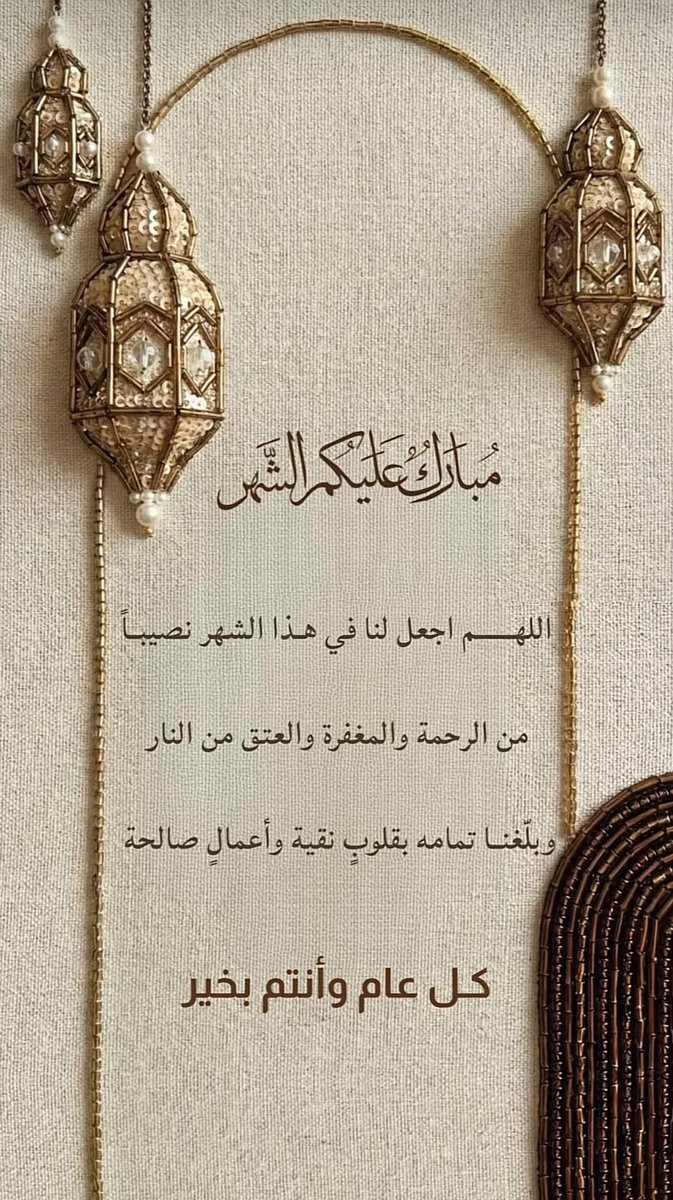 مُبَارَكٌ عَلَيْكُم الشَّهر
اللهـــم اجعل لنا في هـذا الشهر نصيبـاً
من الرحمة والمغفرة والعتق من النار
وبلّغنـا تمامه بقلوبٍ نقية وأعمالٍ صالحة
كـل عام وأنتم بخير